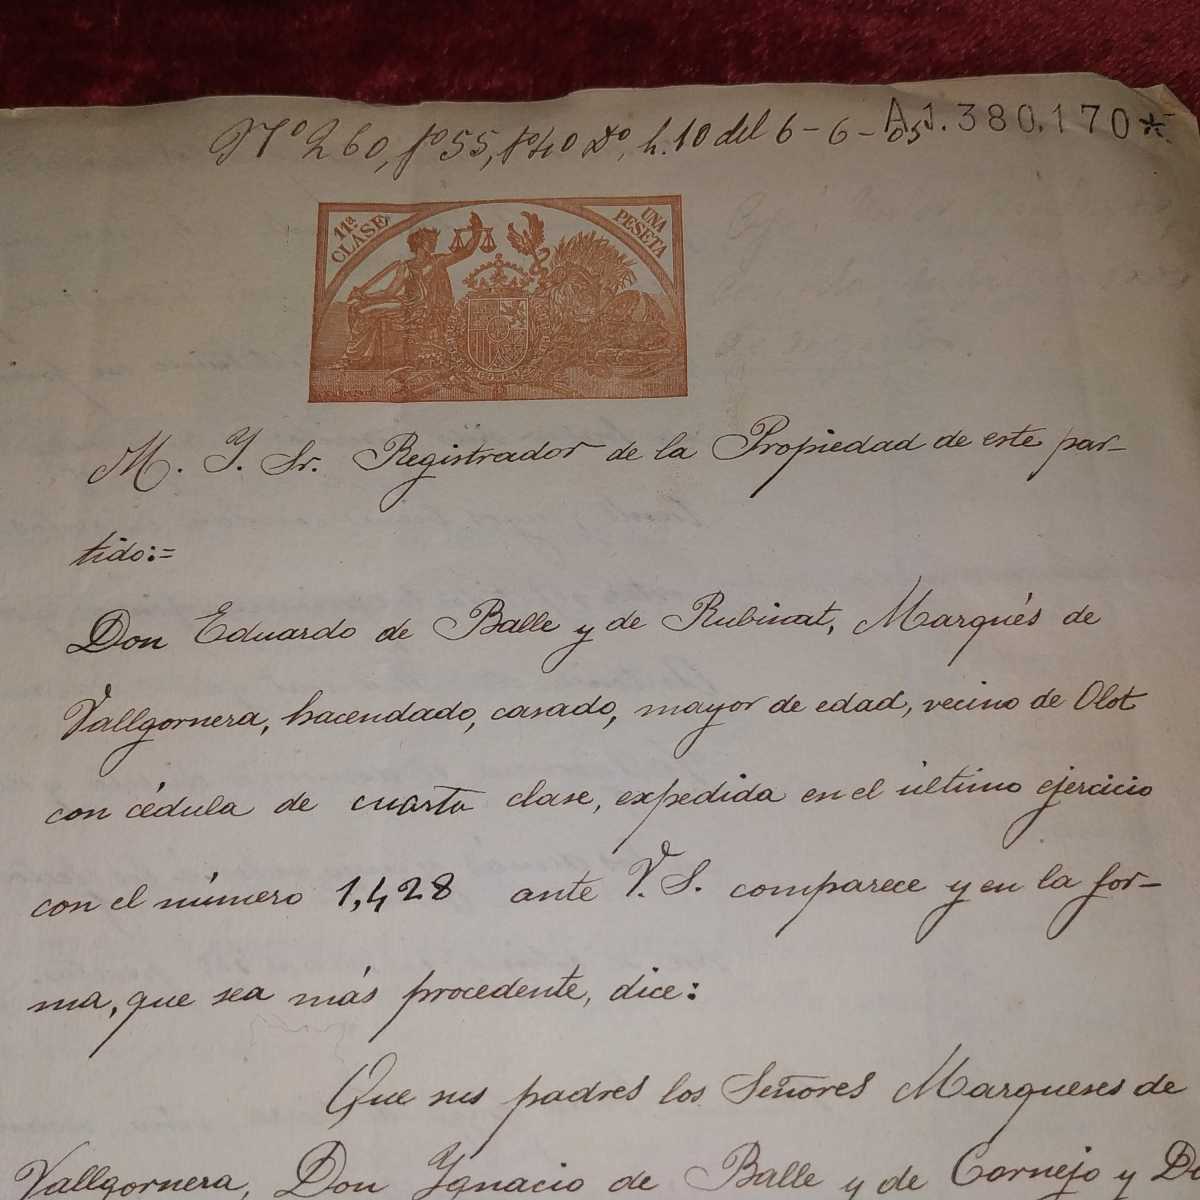 Nº 260, fº 55, tº 40 Dº, h. 10 del 6-6-05
A.1.380,170*
11ª CLASE
UNA PESETA
M. Y. Sr. Registrador de la Propiedad de este par-
tido:=
Don Eduardo de Balle y de Rubinat, Marqués de
Vallgornera, hacendado, casado, mayor de edad, vecino de Olot
con cédula de cuarta clase, expedida en el último ejercicio
con el número 1,428 ante V. S. comparece y en la for-
ma, que sea más procedente, dice:
Que sus padres los Señores Marqueses de
Vallgornera, Don Ygnacio de Balle y de Cornejo y